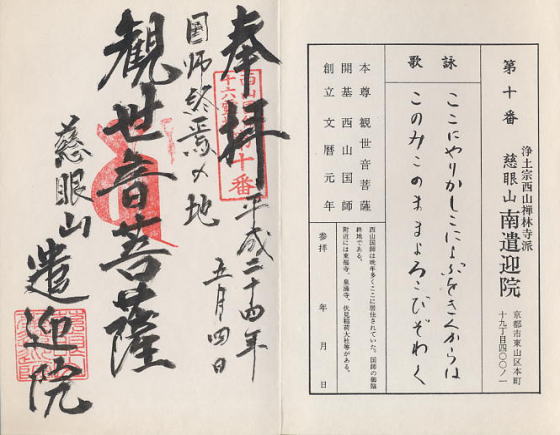 第十番
浄土宗西山禅林寺派
慈眼山 南遣迎院
京都市東山区本町
十九丁目四〇〇ノ一
詠歌
ここにやりかしこによぶをきくからは
このみこのままよろこびぞわく
本尊 観世音菩薩
開基 西山国師
創立 文暦元年
西山国師は晩年多くここに居住されていた。国師の御臨
終地である。
附近には東福寺、泉涌寺、伏見稲荷大社等がある。
参拝 年 月 日
奉拝
平成二十四年
五月四日
第十番
国師終焉の地
観世音菩薩
慈眼山
遣迎院